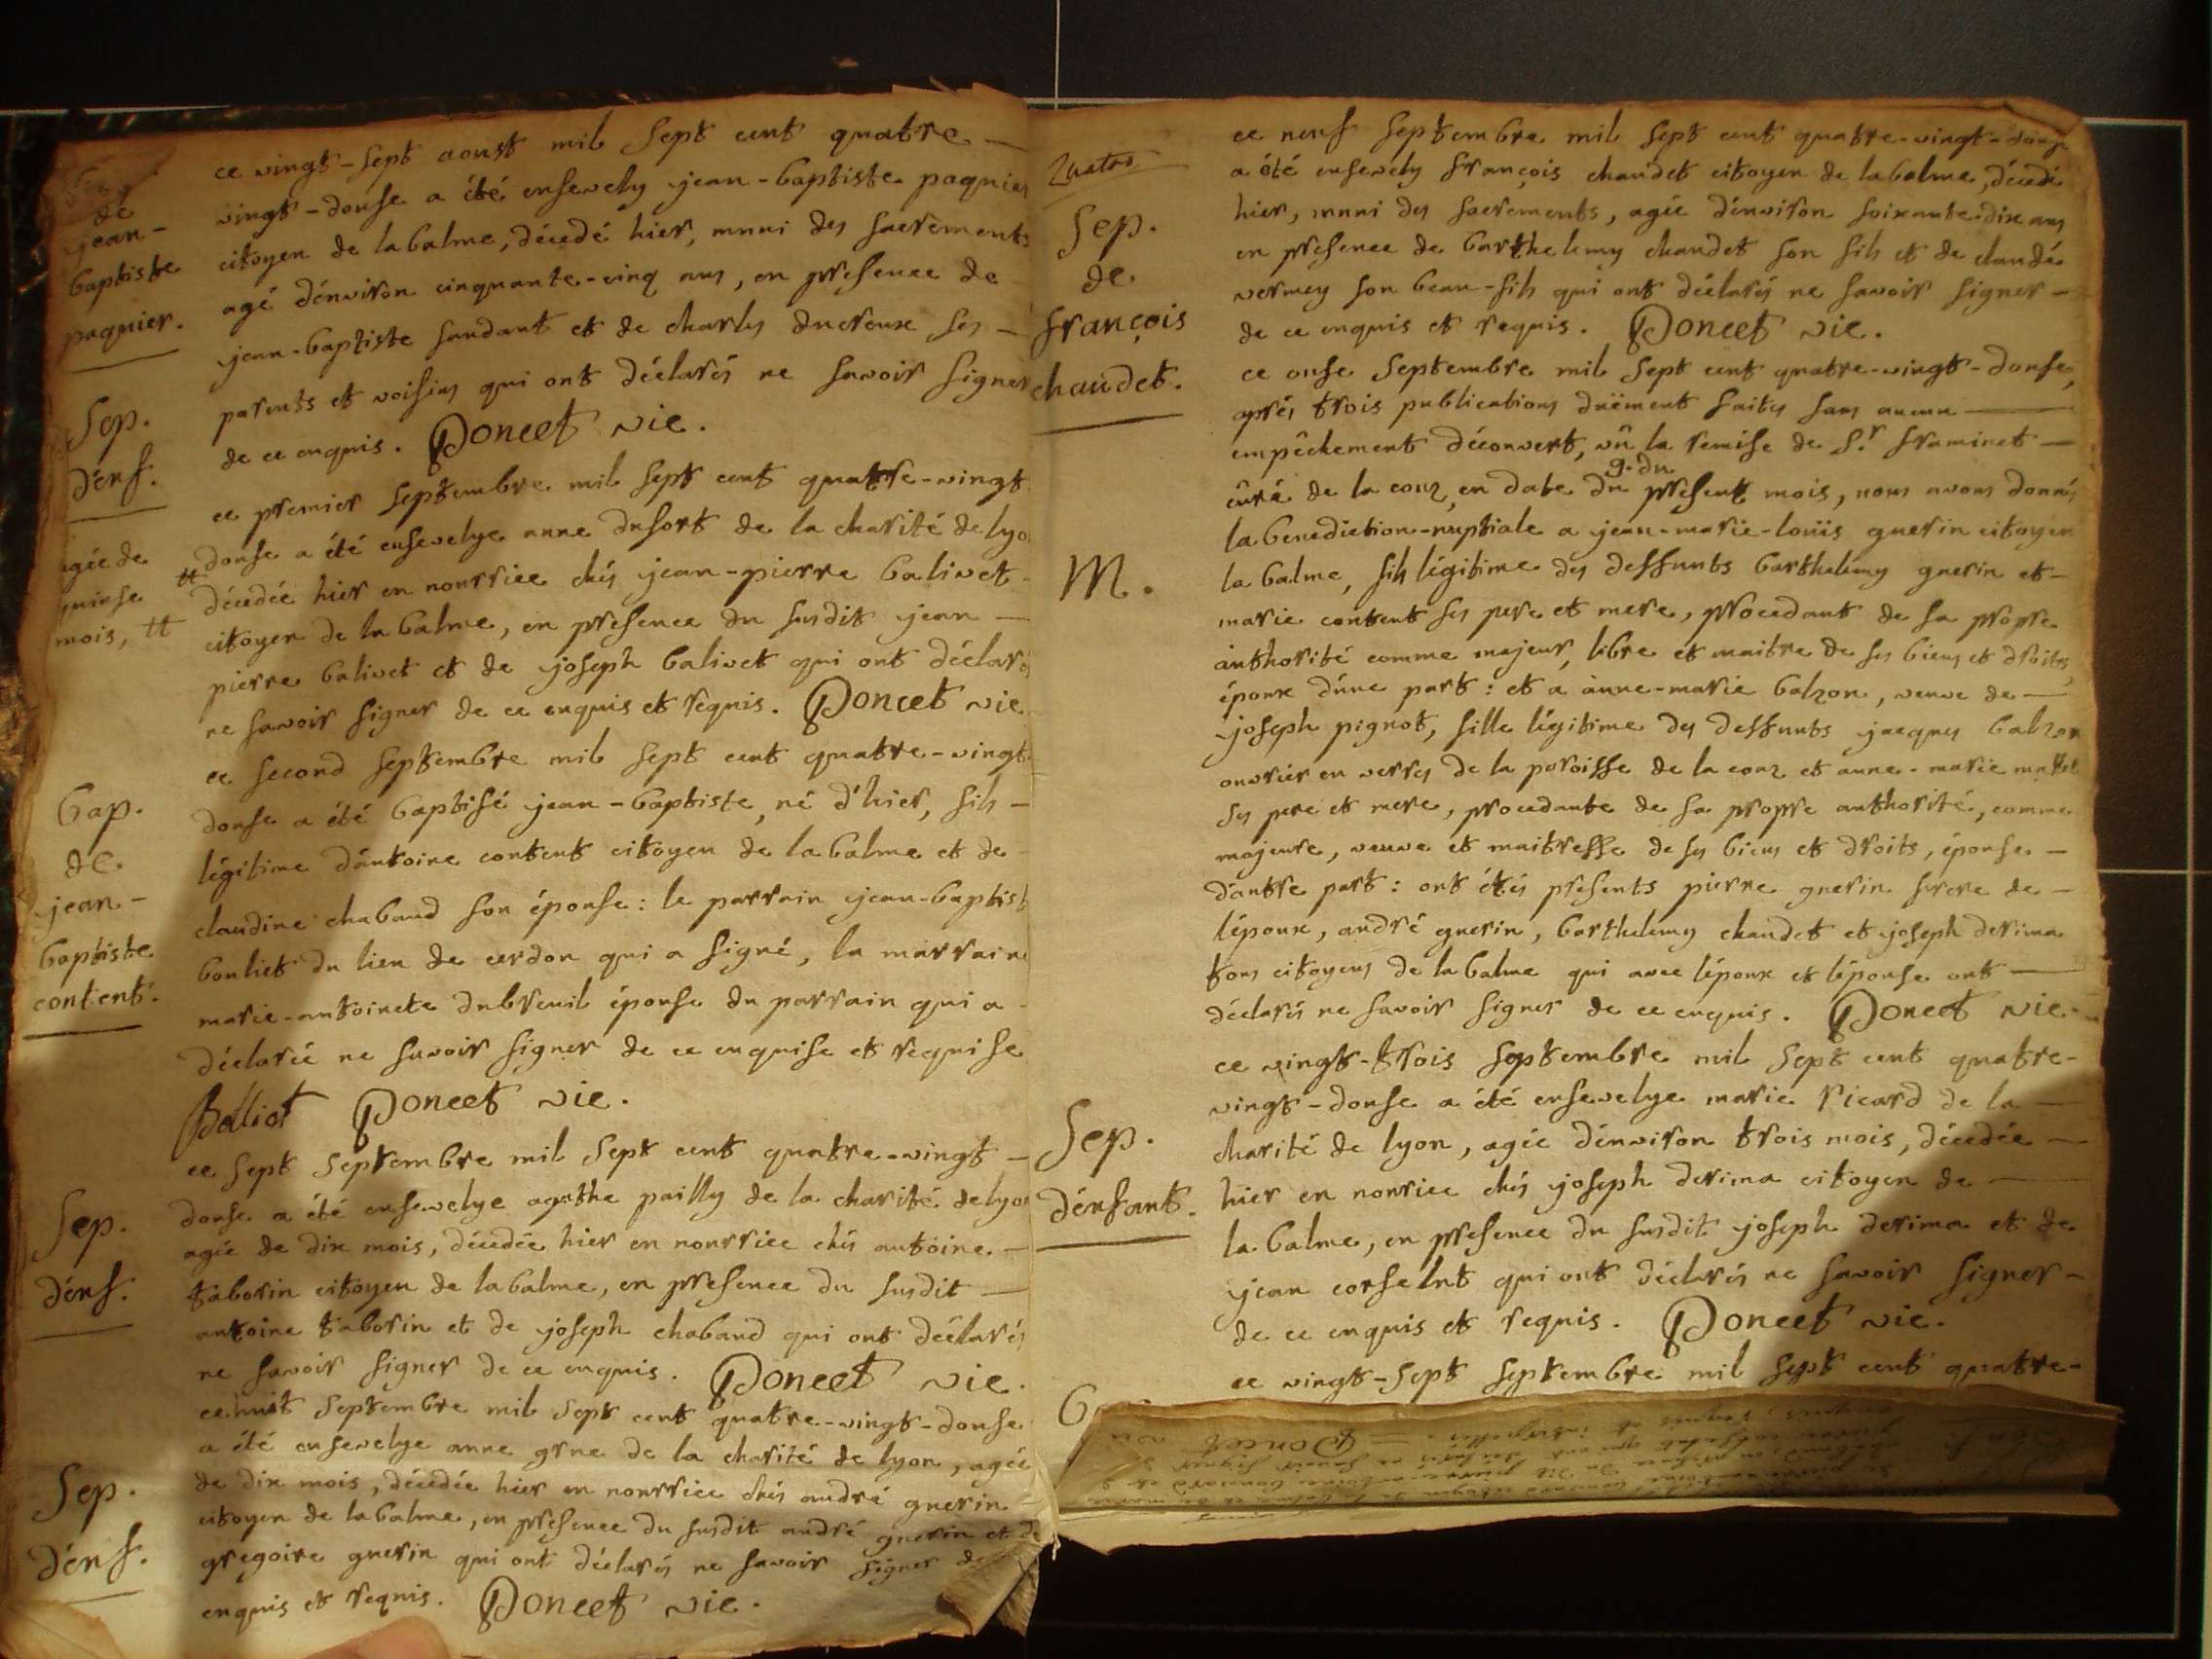 de
jean-
baptiste
paquier.
ce vingt-sept aoust mil sept cent quatre
vingt-douse a été ensevely jean-baptiste paquier
citoyen de labalme, décedé hier, muni des sacrements
agé d'environ cinquante-cinq ans, en presence de
jean-baptiste saudant et de charles ducroux ses
parents et voisins qui ont déclarés ne savoir signer
de ce enquis. Poncet vic.
Sep.
d'enf.
agée de
quinse
mois, tt
ce premier septembre mil sept cent quatre-vingt
douse a été ensevelye anne dufort de la charité de lyo
tt décedée hier en nourrice chés jean-pierre balivet
citoyen de la balme, en presence du susdit jean
pierre balivet et de joseph balivet qui ont déclarés
ne savoir signer de ce enquis et requis. Poncet vic
bap.
de
jean-
baptiste
content.
ce second septembre mil sept cent quatre-vingt
douse a été baptisé jean-baptiste, né d'hier, fils
légitime d'antoine content citoyen de la balme et de
claudine chabaud son épouse: le parrain jean-baptist
bouliet du lieu de cerdon qui a signé, la marraine
marie-antoinete dubreuil épouse du parrain qui a
déclarée ne savoir signer de ce enquise et requise
Bolliet Poncet vic.
Sep.
d'enf.
ce sept septembre mil sept cent quatre-vingt
douse a été ensevelye agathe pailly de la charité de lyon
agée de dix mois, décedée hier en nourrice chés antoine
taborin citoyen de labalme, en presence du susdit
antoine taborin et de joseph chabaud qui ont déclarés
ne savoir signer de ce enquis. Poncet vic.
Sep.
d'enf.
ce huit septembre mil sept cent quatre-vingt-douse
a été ensevelye anne grue de la charité de lyon, agée
de dix mois, décedée hier en nourrice chés andré guerin
citoyen de labalme, en presence du susdit andré guerin et de
gregoire guerin qui ont déclarés ne savoir signer de
enquis et requis. Poncet vic.
quatre
Sep.
de
françois
chaudet.
ce neuf septembre mil sept cent quatre-vingt-douse
a été ensevely françois chaudet citoyen de labalme, décedé
hier, muni des sacrements, agée d'environ soixante-dix ans
en presence de barthelemy chaudet son fils et de claude
vermey son beau-fils qui ont déclarés ne savoir signer
de ce enquis et requis. Poncet vic.
M.
ce onse septembre mil sept cent quatre-vingt-douse,
aprés trois publications duëment faites sans aucun
empêchement découvert, vû la remise de S.r framinet
curé de la couz, en date du 9. du present mois, nous avons donnés
la benediction-nuptiale a jean-marie-louïs guerin citoyen
la balme, fils légitime des deffunts barthelemy guerin et
marie content ses pere et mere, procedant de sa propre
authorité comme majeur, libre et maitre de ses biens et droits,
époux d'une part: et a anne-marie balzon, veuve de
joseph pignot, fille légitime des deffunts jacques balzon
ouvrier en verres de la paroisse de la couz et anne-marie mattel
ses pere et mere, procedante de sa propre authorité, comme
majeure, veuve et maitresse de ses biens et droits, épouse
d'autre part: ont étés presents pierre guerin frere de
l'époux, andré guerin, barthelemy chaudet et joseph derima
tous citoyens de la balme qui avec l'époux et l'épouse ont
déclarés ne savoir signer de ce enquis. Poncet vic.
Sep.
d'enfant.
ce vingt-trois septembre mil sept cent quatre-
vingt-douse a été ensevelye marie ricard de la
charité de lyon, agée d'environ trois mois, décedée
hier en nourrice chés joseph derima citoyen de
la balme, en presence du susdit joseph derima et de
jean corselut qui ont déclarés ne savoir signer
de ce enquis et requis. Poncet vic.
ce vingt-sept septembre mil sept cent quatre-